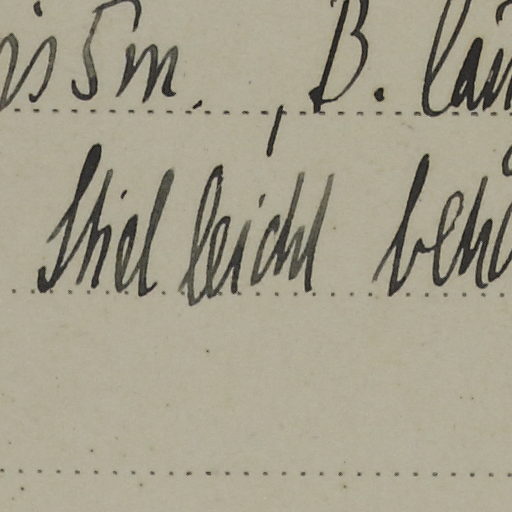 is 5m., B. län
Stiel leicht beha